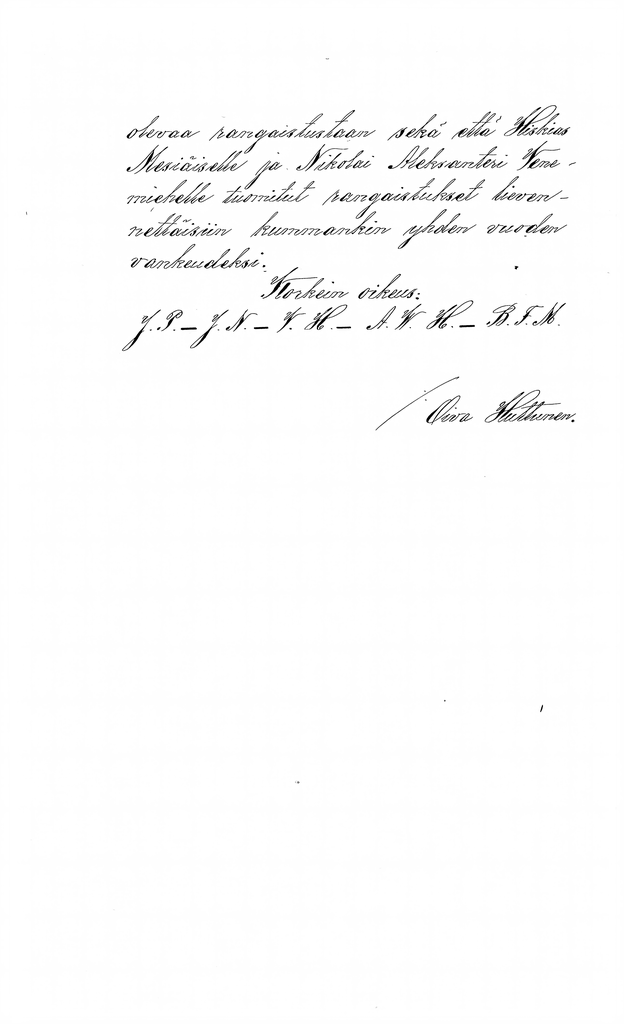 olevaa rangaistustaan sekä että Hiskias
Mesiäiselle ja Nikolai Aleksanteri Vene-
miehelle tuomitut rangaistukset lieven-
nettäisiin kummankin yhden vuoden
vankeudeksi.
Korkein oikeus:
J. P. – J. N. – V. H. – A. W. H. – B. F. M.
Oiva Huttunen.